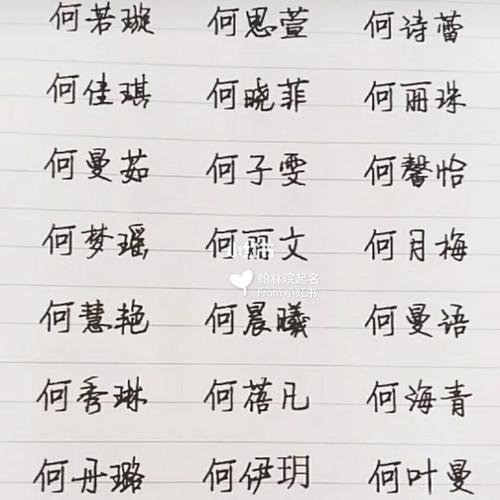 何若璇 何思萱 何诗蕾
何佳琪 何晓菲 何丽珠
何曼茹 何子雯 何馨怡
何梦瑶 何丽文 何月梅
小红书
翰林院起名
From 小红书
何慧艳 何晨曦 何曼语
何秀琳 何蓓凡 何海青
何丹璐 何伊玥 何叶曼